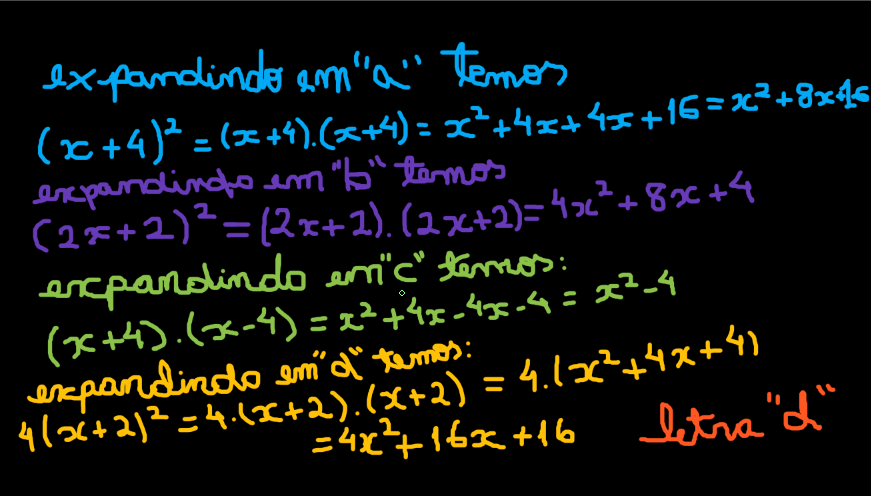 expandindo em "a" temos
(x+4)² = (x+4).(x+4) = x²+4x+4x+16 = x²+8x+16
expandindo em "b" temos
(2x+2)² = (2x+2).(2x+2) = 4x²+8x+4
expandindo em "c" temos:
(x+4).(x-4) = x²+4x-4x-4 = x²-4
expandindo em "d" temos:
4(x+2)² = 4.(x+2).(x+2) = 4.(x²+4x+4)
= 4x²+16x+16
letra "d"